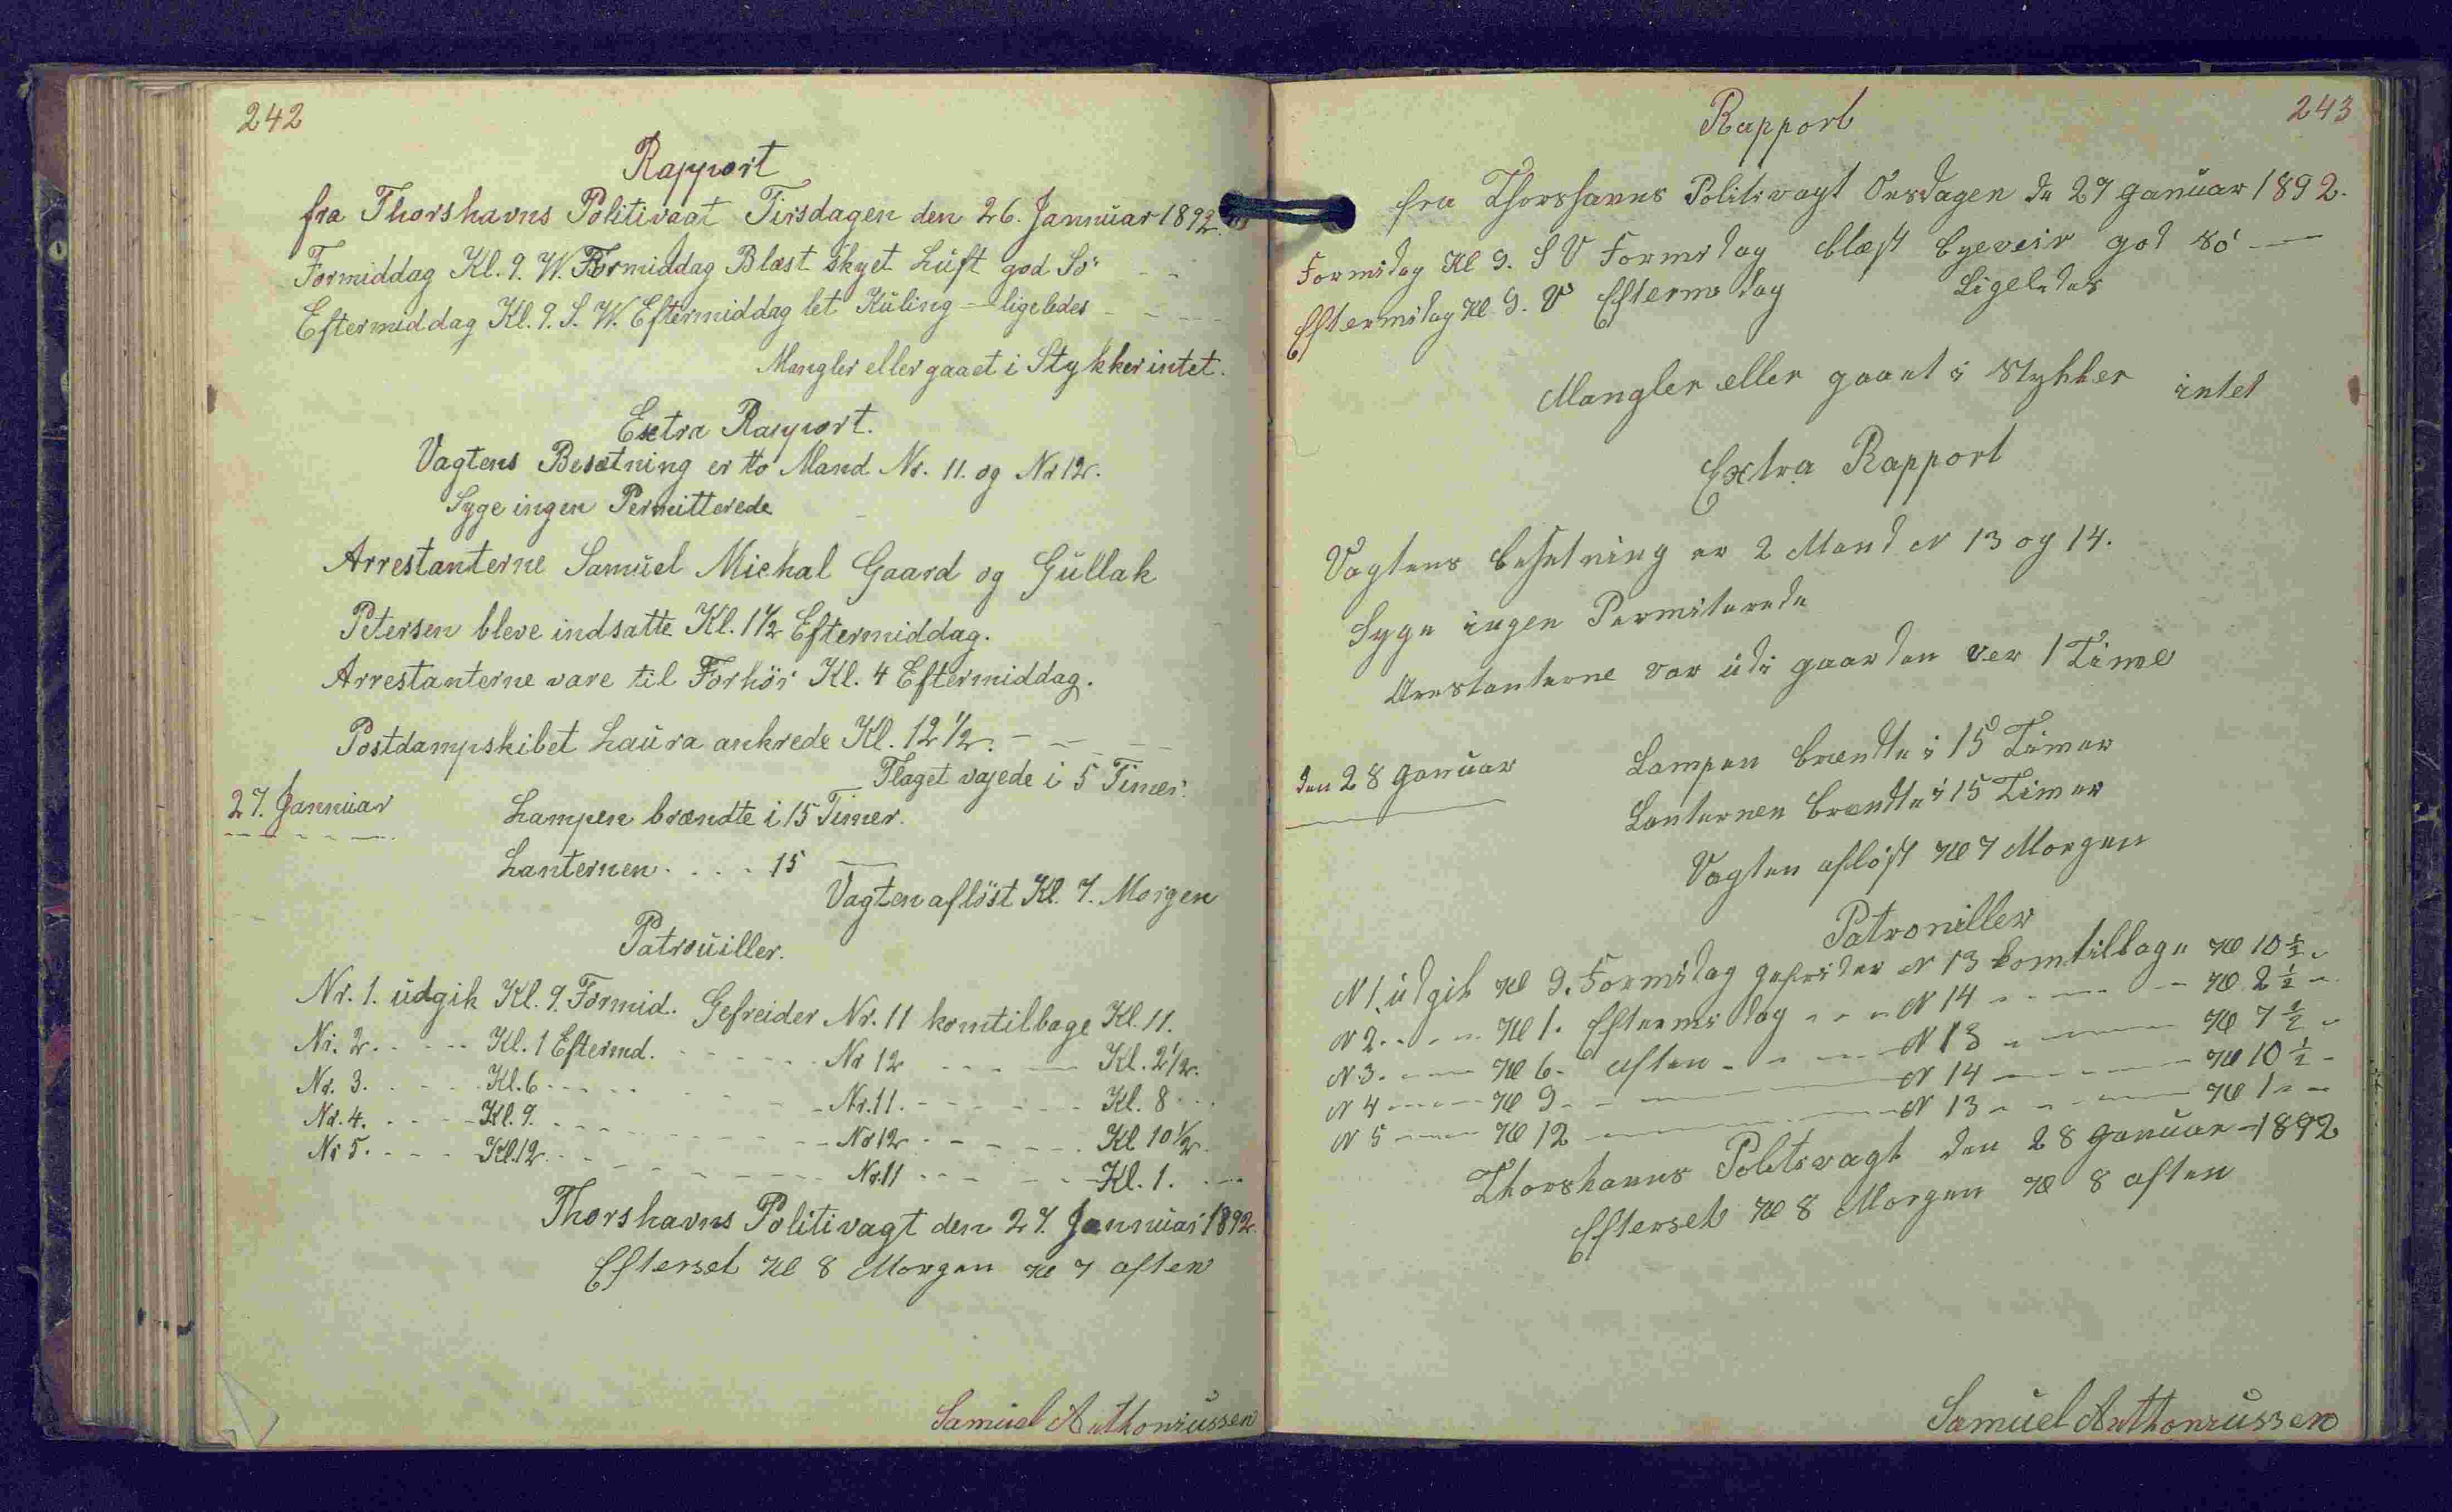 242
Rapport
fra Thorshavns Politivagt Tirsdagen den 26. Januuar 1892.
Formiddag Kl. 9. W. Formiddag Blæst skyet Luft god Sö
Eftermiddag Kl. 9. S. W. Eftermiddag let Kuling - ligeledes
Mangler eller gaaet i Stykker intet.
Extra Rapport.
Vagtens Besætning er to Mand Nr. 11. og Nr 12.
Syge ingen Permitterede
Arrestanterne Samuel Michal Gaard og Gullak
Petersen bleve indsatte Kl. 1 1/2 Eftermiddag.
Arrestanterne vare til Forhör Kl. 4 Eftermiddag.
Postdampskibet Laura ankrede Kl. 12 1/2.
Flaget vajede i 5 Timer.
27. Januuar
Lampen brændte i 15 Timer.
Lanternen . . . . 15 —
Vagten aflöst Kl. 7. Morgen
Patrouiller.
Nr. 1. udgik Kl. 9. Formid. Gefreider Nr. 11 kom tilbage Kl. 11.
Nr. 2. - - - Kl. 1 Eftermd. - - - Nr 12 - - - Kl. 2 1/2.
Nr. 3. - - - Kl. 6 - - - Nr. 11. - - - Kl. 8 - - -
Nr. 4. - - - Kl. 9. - - - Nr 12 - - - Kl 10 1/2.
Nr 5. - - - Kl. 12 - - - Nr. 11 - - - Kl. 1. - - -
Thorshavns Politivagt den 27. Januuar 1892.
Efterset Kl 8 Morgen Kl 7 aften
Samuel Anthoniussen
243
Rapport
fra Thorshavns Politivagt Onsdagen de 27 Januar 1892.
Formidag Kl 9. S V Formidag blæst byeveir god Sö —
Eftermidag Kl 9. V Eftermidag Ligeledes
Mangler eller gaaet i Stykker intet
Extra Rapport
Vagtens besetning er 2 Mand N 13 og 14.
Syge ingen Permiterede
Arestanterne var udi gaarden ver 1 Time
den 28 Januar
Lampen brændte i 15 Timer
Lanternen brændte i 15 Timer
Vagten aflöst Kl 7 Morgen
Patroniller
N 1. udgik Kl 9. Formidag gefreider N 13 kom tilbage Kl 10 1/2 -
N 2. - - - Kl 1. Eftermidag - - - N 14 - - - Kl 2 1/2 -
N 3. - - - Kl 6. aften - - - N 13 - - - Kl 7 1/2 -
N 4 - - - Kl 9 - - - N 14 - - - Kl 10 1/2 -
N 5 - - - Kl 12 - - - N 13 - - - Kl 1 - -
Thorshavns Politivagt den 28 Januar - 1892
Efterset Kl 8 Morgen Kl 8 aften
Samuel Anthoniussen